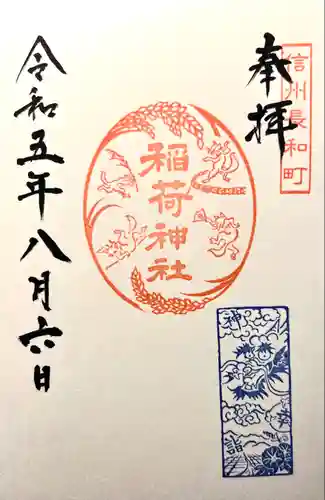 奉拝
信州長和町
稲荷神社
令和五年八月六日